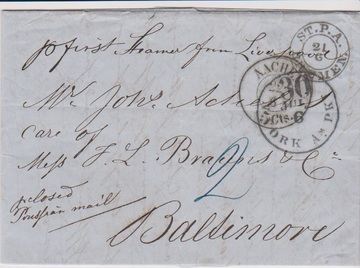 p first Steamer from Liverpool
Mr. Johs
care of
Mess F. L. & Co
2
closed
Prussian mail
Baltimore
ST.P.A.
21
6
MEN
AACHEN
30
Cts.
6
YORK Am PK